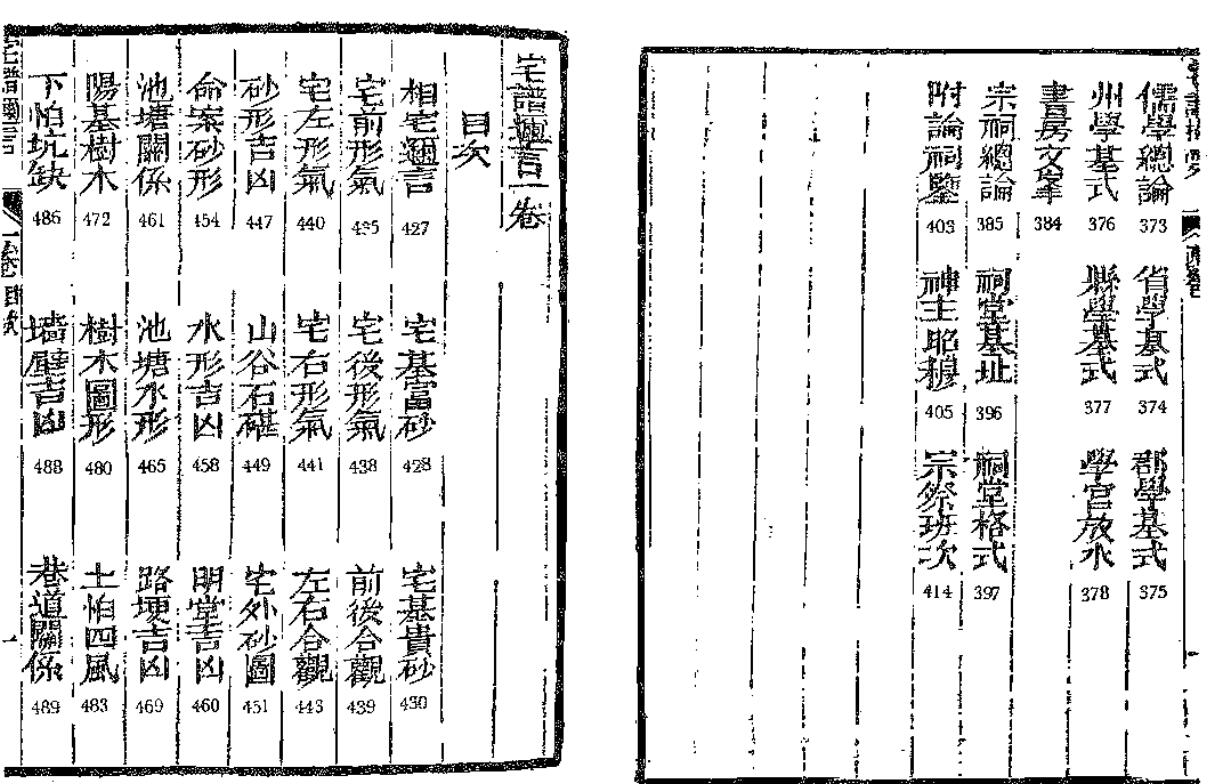 儒學總論 373 省學基式 374 郡學基式 375
州學基式 376 縣學基式 377 學宮放水 378
書房文峯 384
宗祠總論 385 祠堂基址 396 祠堂格式 397
附論祠鑒 403 神主昭穆 405 宗祭班次 414
宅譜邇言一卷
目次
相宅邇言 427 宅基富砂 428 宅基貴砂 430
宅前形氣 435 宅後形氣 438 前後合觀 439
宅左形氣 440 宅右形氣 441 左右合觀 443
砂形吉凶 447 山谷石磋 449 宅外砂圖 451
命案砂形 454 水形吉凶 458 明堂吉凶 460
池塘關係 461 池塘水形 465 路埂吉凶 469
陽基樹木 472 樹木圖形 480 土怕四風 483
下怕坑缺 486 墻壁吉凶 488 巷道關係 489